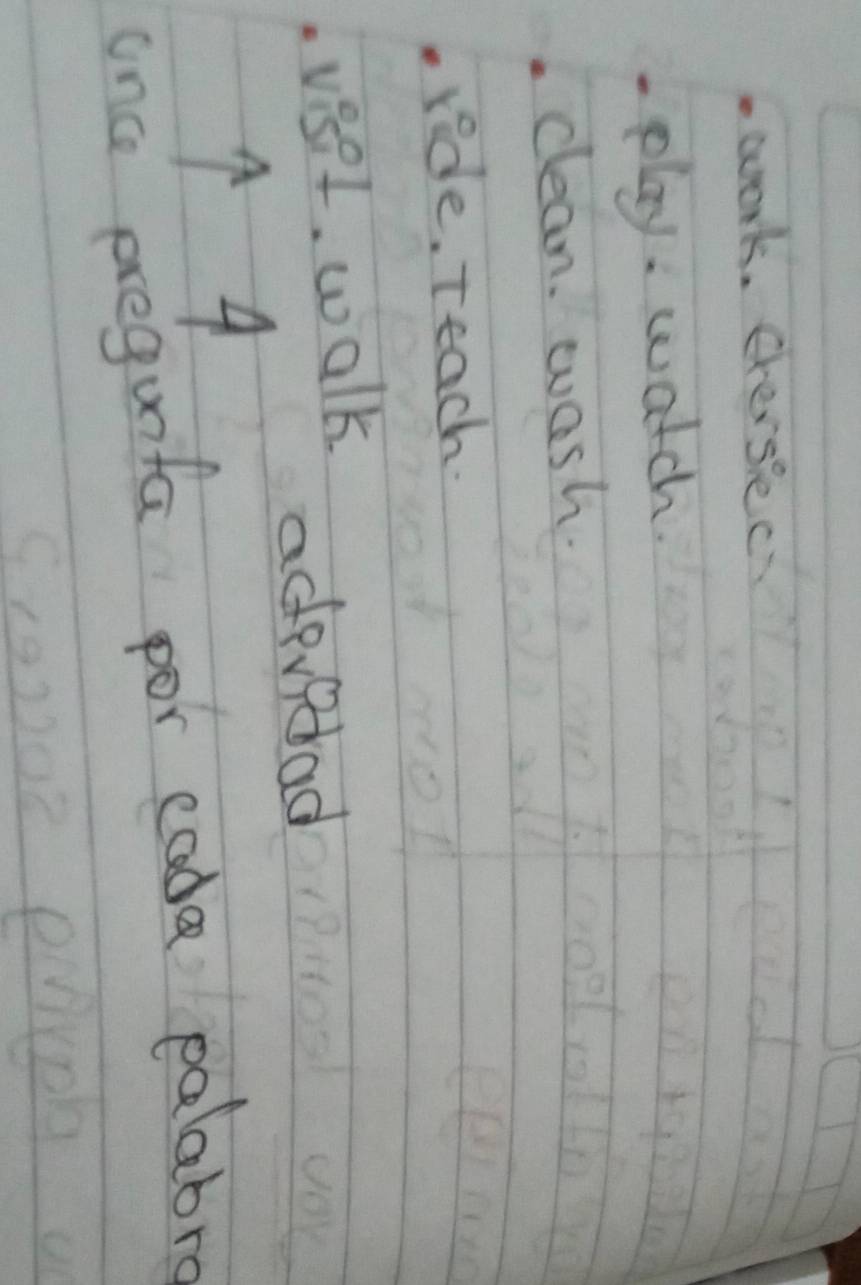 • work. exersiec
• play. watch.
• clean. wash.
• ride. Teach.
• visit. walk.
actividad
una pregunta por cada palabra